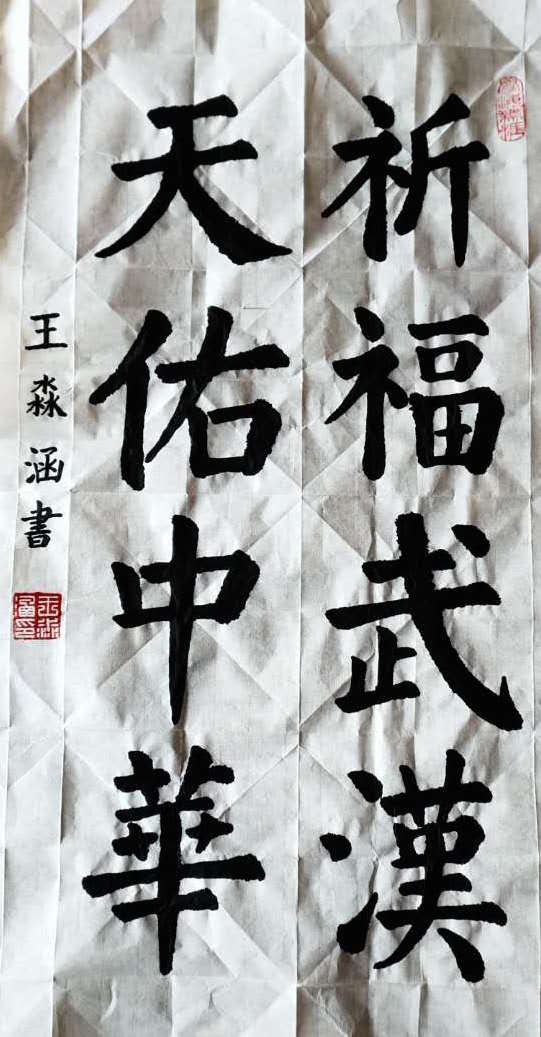 祈福武漢
天佑中華
王淼涵書